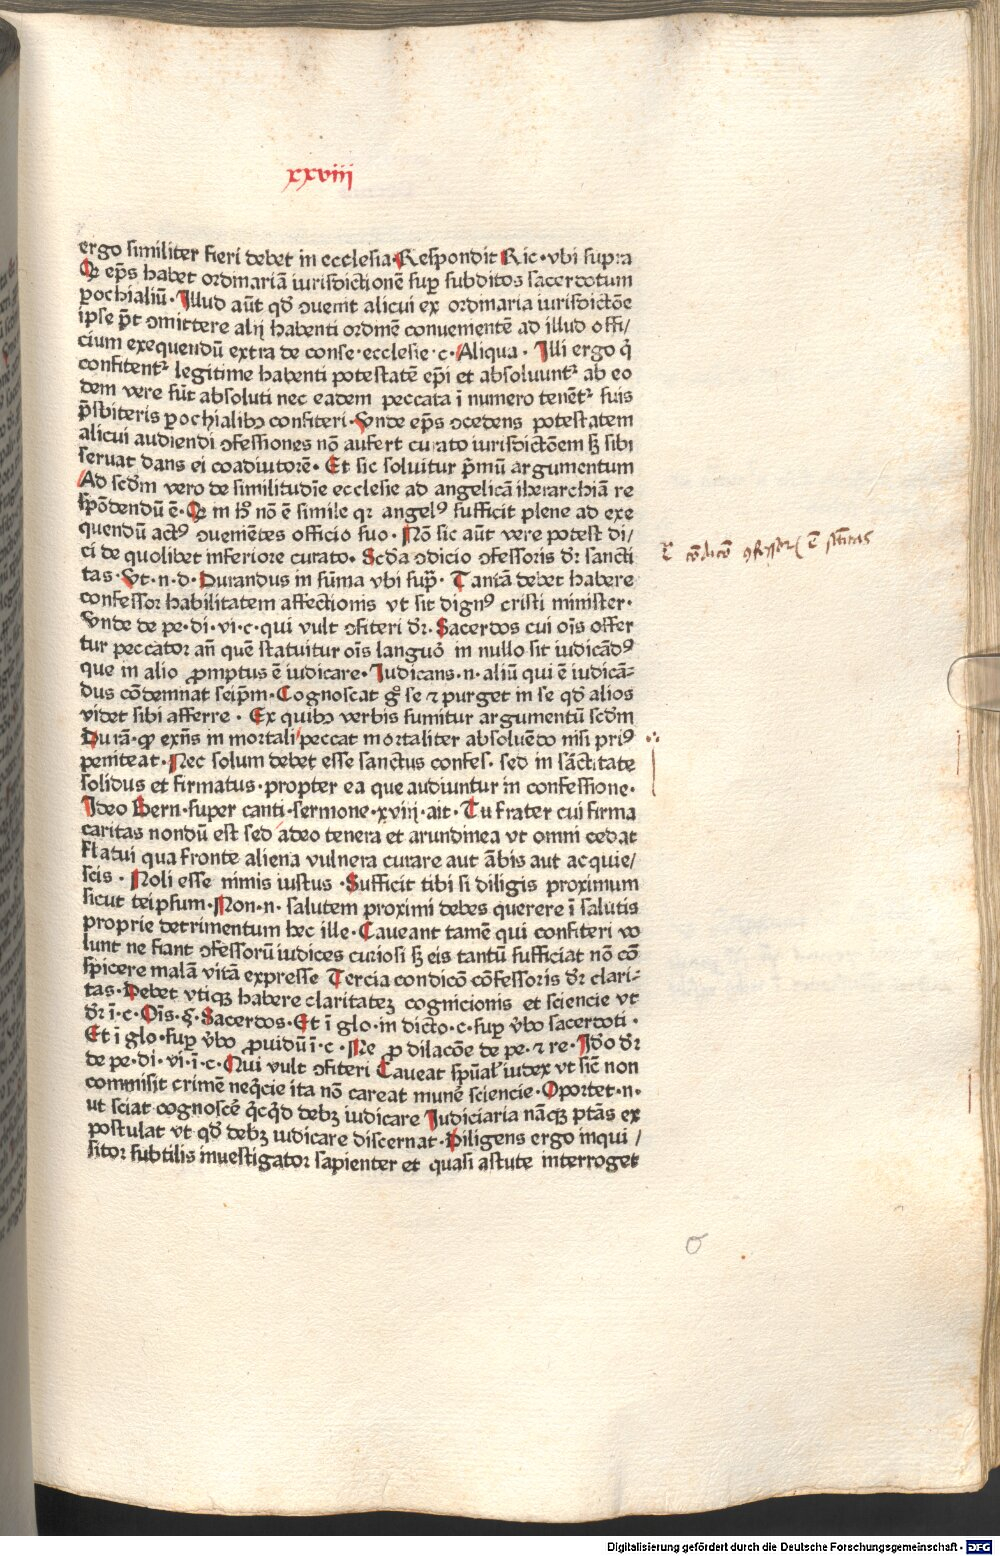 xxviii
ergo similiter fieri debet in ecclesia·Respondit Ric·vbi supra
Qz ep̄s habet ordinariā iurisdictionē sup̱ subditos sacerdotum
ꝑochialiū·Illud aūt qd̄ ꝯuenit alicui ex ordinaria iurisdictōe
ipse pōt ꝯmittere alij habenti ordinē conuenientē ad illud offi/
cium exequendū extra de conse·ecclesie·c·Aliqua· Illi ergo q̄
confitent᷑ legitime habenti potestatē ep̄i et absoluunt᷑ ab eo
dem vere fūt absoluti nec eadem peccata ī numero tenēt᷑ suis
p̄sbiteris ꝑochialibꝫ confiteri·Vnde ep̄s ꝯcedens potestatem
alicui audiendi ꝯfessiones nō aufert curato iurisdictōem sꝫ sibi
seruat dans ei coadiutorē· Et sic soluitur p̄mū argumentum
Ad scd̄m vero de similitudīe ecclesie ad angelicā iherarchiā re
spōdendū ē·Qz in hͦ nō ē simile qꝛ angelꝰ sufficit plene ad exe
quendū actꝰ ꝯueniētes officio suo·Nō sic aūt vere potest di/
ci de quolibet inferiore curato·Scd̄a ꝯdicio ꝯfessoris dr̄ sancti
tas·Vt·n·d·Durandus in sūma vbi sup̄·Tantā debet habere
confessor habilitatem affectionis vt sit dignꝰ cristi minister·
Vnde de pe·di·vi·c·qui vult ꝯfiteri dr̄·Sacerdos cui oīs offer
tur peccator añ quē statuitur oīs languoꝛ in nullo sit iudicādꝰ
que in alio ꝓmptus ē iudicare·Iudicans·n·aliū qui ē iudicā-
dus cōdemnat seip̄m·Cognoscat gͦ se ⁊ purget in se qd̄ alios
videt sibi afferre· Ex quibꝫ verbis sumitur argumentū scd̄m
Durā·ꝙ exñs in mortali peccat mortaliter absoluēdo nisi priꝰ
peniteat·Nec solum debet esse sanctus confes· sed in sāctitate
solidus et firmatus·propter ea que audiuntur in confessione·
Ideo Bern·super canti·sermone·xviij·ait·Tu frater cui firma
caritas nondū est sed adeo tenera et arundinea vt omni cedat
flatui qua fronte aliena vulnera curare aut ābis aut acquie/
scis· Noli esse nimis iustus·Sufficit tibi si diligis proximum
sicut teipsum·Non·n·salutem proximi debes querere ī salutis
proprie detrimentum hec ille·Caueant tamē qui confiteri vo
lunt ne fiant ꝯfessorū iudices curiosi sꝫ eis tantū sufficiat nō cō
spicere malā vitā expresse Tercia condicō cōfessoris dr̄ clari-
tas·Debet vtiqꝫ habere claritateꝫ cognicionis et sciencie vt
dr̄ ī·c·Oīs·§·Sacerdos·Et ī glo·in dicto·c·sup̱ v̄bo sacerdoti·
Et ī glo·sup̱ v̄bo ꝓuidū ī·c·Ne ꝓ dilacōe de pe·⁊ re·Id̄o dr̄
de pe·di·vi·ī·c·Qui vult ꝯfiteri Caueat spūal' iudex vt sic̄ non
commisit crimē neq̄cie ita nō careat munē sciencie·Oportet·n·
ut sciat cognoscē q̄cq̄d debꝫ iudicare Iudiciaria nāqꝫ ptās ex
postulat vt qd̄ debꝫ iudicare discernat·Diligens ergo inqui/
sitor subtilis inuestigator sapienter et quasi astute interroget
Digitalisierung gefördert durch die Deutsche Forschungsgemeinschaft · DFG